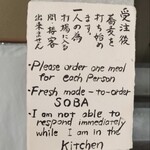 受注後
蕎麦を
打ち始め
ます。
一人の為
打場に入る
間、接客
出来ません
• Please order one meal
for each Person
• Fresh made-to-order
SOBA
• I am not able to
respond immediately
while I am in the
Kitchen